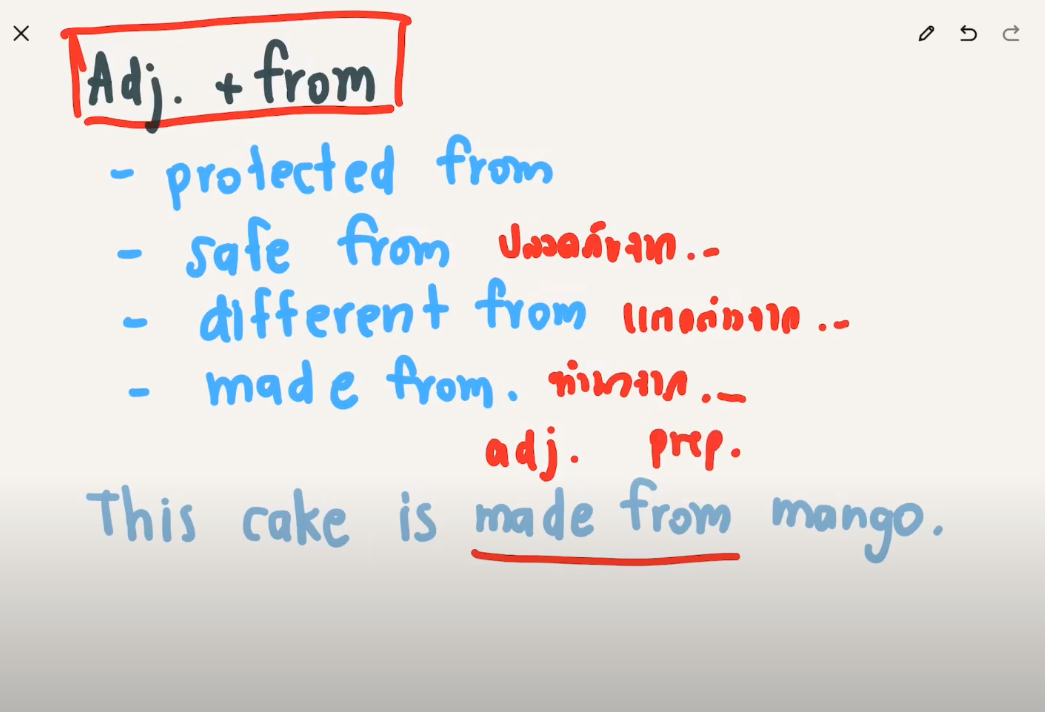 Adj. + from
- protected from
- safe from ปลอดภัยจาก..-
- different from แตกต่างจาก..-
- made from. ทำมาจาก.._
adj. prep.
This cake is made from mango.